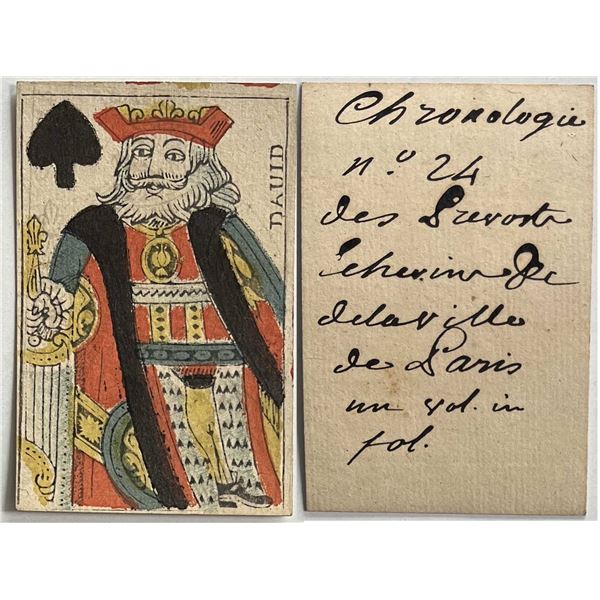 DAVID
Chronologie
n.° 24
des Prevosts
Echevins &c
de la ville
de Paris
un vol. in
fol.